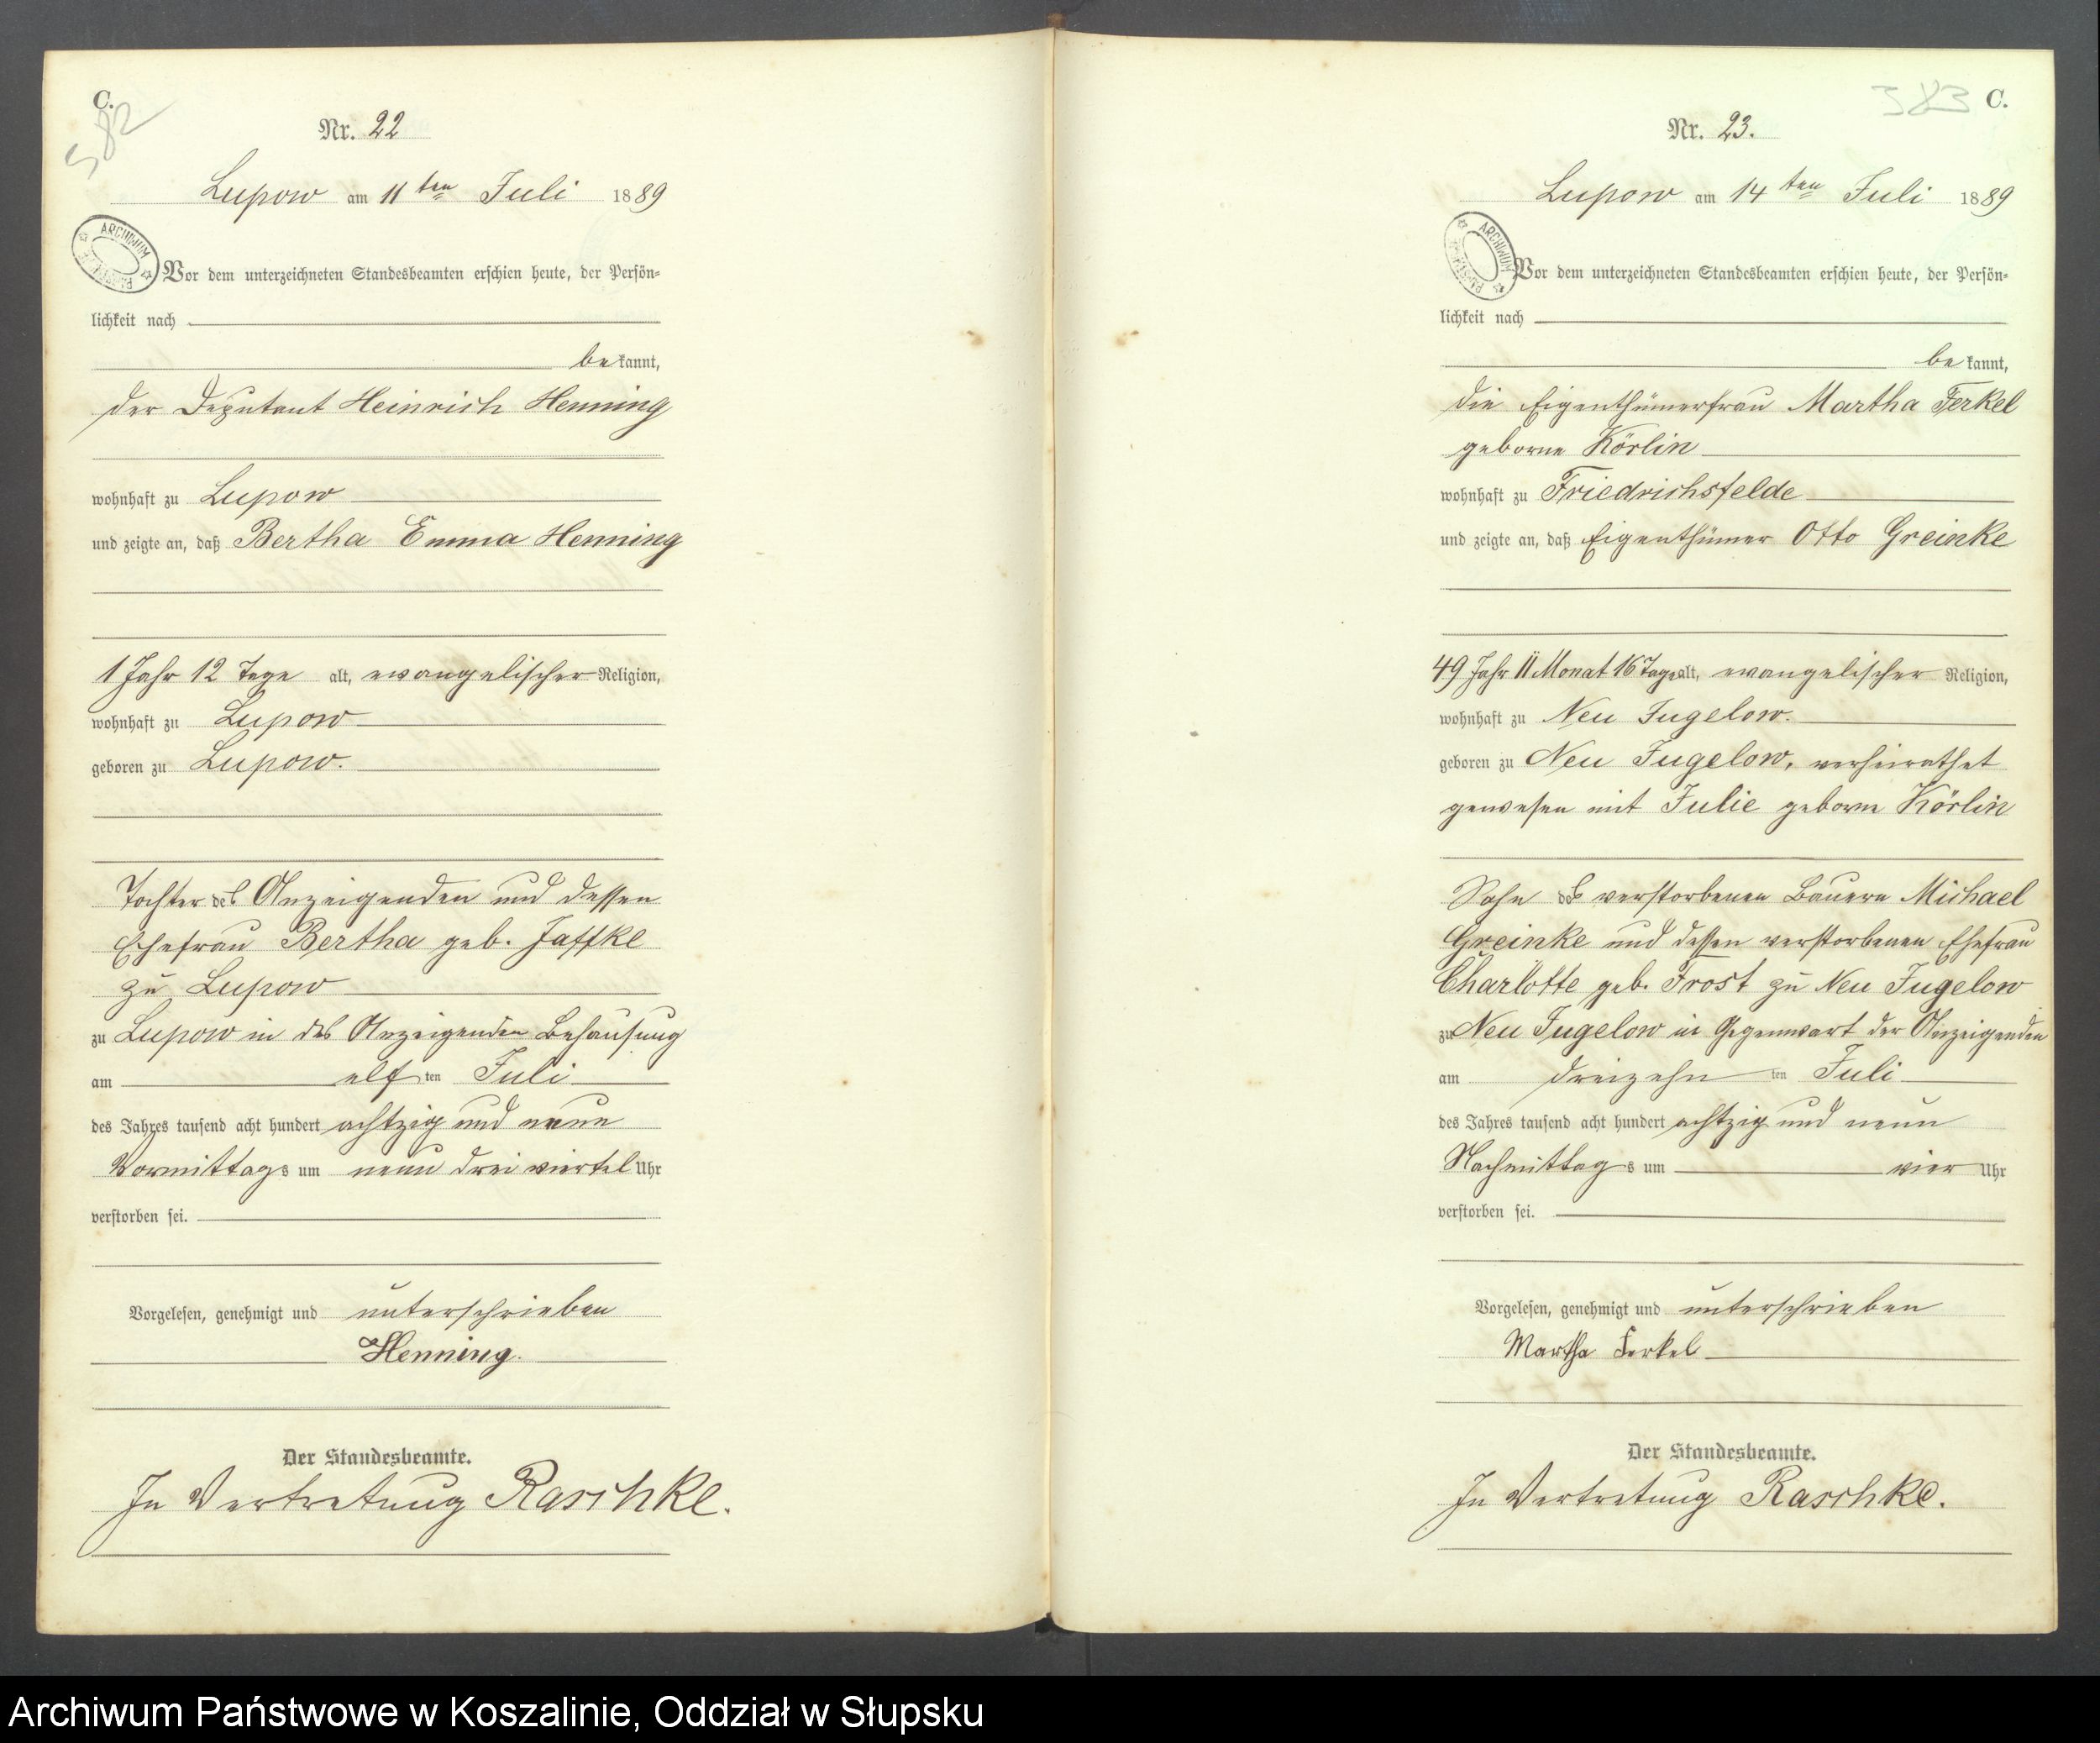 C.
582
Nr. 22
Lupow am 11ten Juli 1889
ARCHIWUM
Vor dem unterzeichneten Standesbeamten erschien heute, der Persön-
lichkeit nach
bekannt,
der Deputant Heinrich Henning
wohnhaft zu Lupow
und zeigte an, daß Bertha Emma Henning
1 Jahr 12 Tage alt, evangelischer Religion,
wohnhaft zu Lupow
geboren zu Lupow.
Tochter des Anzeigenden und dessen
Ehefrau Bertha geb. Jaffke
zu Lupow
zu Lupow in des Anzeigenden Behausung
am elften Juli
des Jahres tausend acht hundert achtzig und neun
Vormittags um neun drei viertel Uhr
verstorben sei.
Vorgelesen, genehmigt und unterschrieben
Henning.
Der Standesbeamte.
In Vertretung Raschke.
383 C.
Nr. 23.
Lupow am 14ten Juli 1889
ARCHIWUM
Vor dem unterzeichneten Standesbeamten erschien heute, der Persön-
lichkeit nach
bekannt,
die Eigenthümerfrau Martha Ferkel
geborne Körlin
wohnhaft zu Friedrichsfelde
und zeigte an, daß Eigenthümer Otto Greinke
49 Jahr 11 Monat 16 Tage alt, evangelischer Religion,
wohnhaft zu Neu Jugelow.
geboren zu Neu Jugelow, verheirathet
gewesen mit Julie geborne Körlin
Sohn des verstorbenen Bauern Michael
Greinke und dessen verstorbenen Ehefrau
Charlotte geb. Frost zu Neu Jugelow
zu Neu Jugelow in Gegenwart der Anzeigenden
am dreizehnten Juli
des Jahres tausend acht hundert achtzig und neun
Nachmittags um vier Uhr
verstorben sei.
Vorgelesen, genehmigt und unterschrieben
Martha Ferkel
Der Standesbeamte.
In Vertretung Raschke.
Archiwum Państwowe w Koszalinie, Oddział w Słupsku